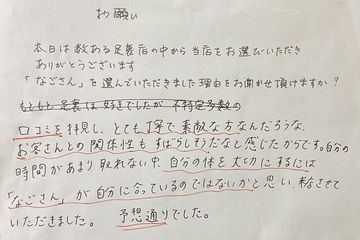 お願い
本日は数ある足裏店の中から当店をお選びいただき
ありがとうございます
「なごさん」を選んでいただきました理由をお聞かせ頂けますか?
もともと足裏は好きでしたが 不特定多数の
口コミを拝見し、とても丁寧で素敵な方なんだろうな、
お客さんとの関係性もすばらしそうだなと感じたからです。自分の
時間があまり取れない中、自分の体を大切にするには
「なごさん」が自分に合っているのではないかと思い、来させて
いただきました。 予想通りでした。